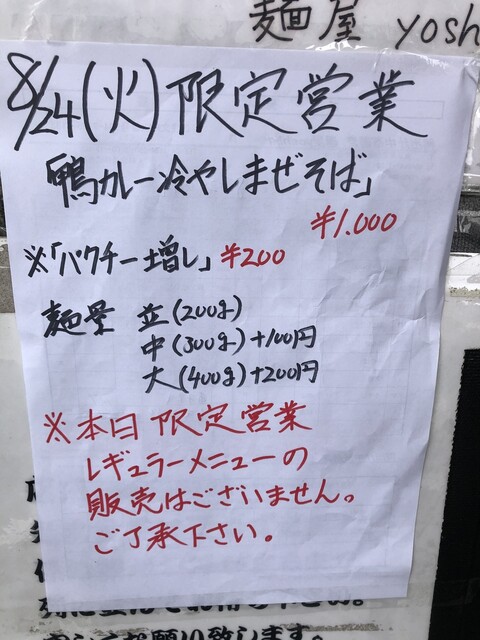 麺屋 yosh
8/24(火)限定営業
「鴨カレー冷やしまぜそば」
¥1.000
※「パクチー増し」¥200
麺量 並(200g)
中(300g)+100円
大(400g)+200円
※本日限定営業
レギュラーメニューの
販売はございません。
ご了承下さい。
お願い致します。